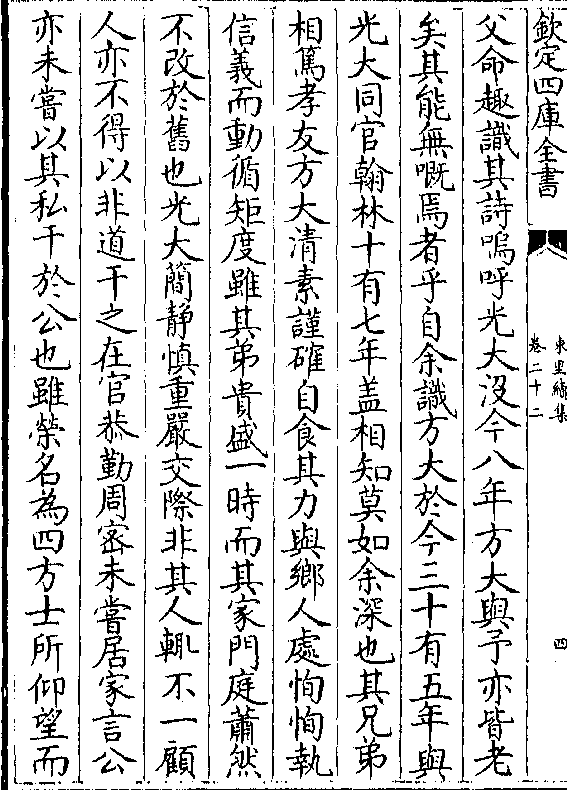 欽定四庫全書
東里續集
卷二十二
四
父命趣識其詩嗚呼光大沒今八年方大與予亦皆老
矣其能無嘅焉者乎自余識方大於今三十有五年與
光大同官翰林十有七年盖相知莫如余深也其兄弟
相篤孝友方大清素謹確自食其力與鄉人處恂恂執
信義而動循矩度雖其弟貴盛一時而其家門庭蕭然
不改於舊也光大簡静慎重嚴交際非其人輒不一顧
人亦不得以非道干之在官恭勤周宻未嘗居家言公
亦未嘗以其私干於公也雖榮名為四方士所仰望而